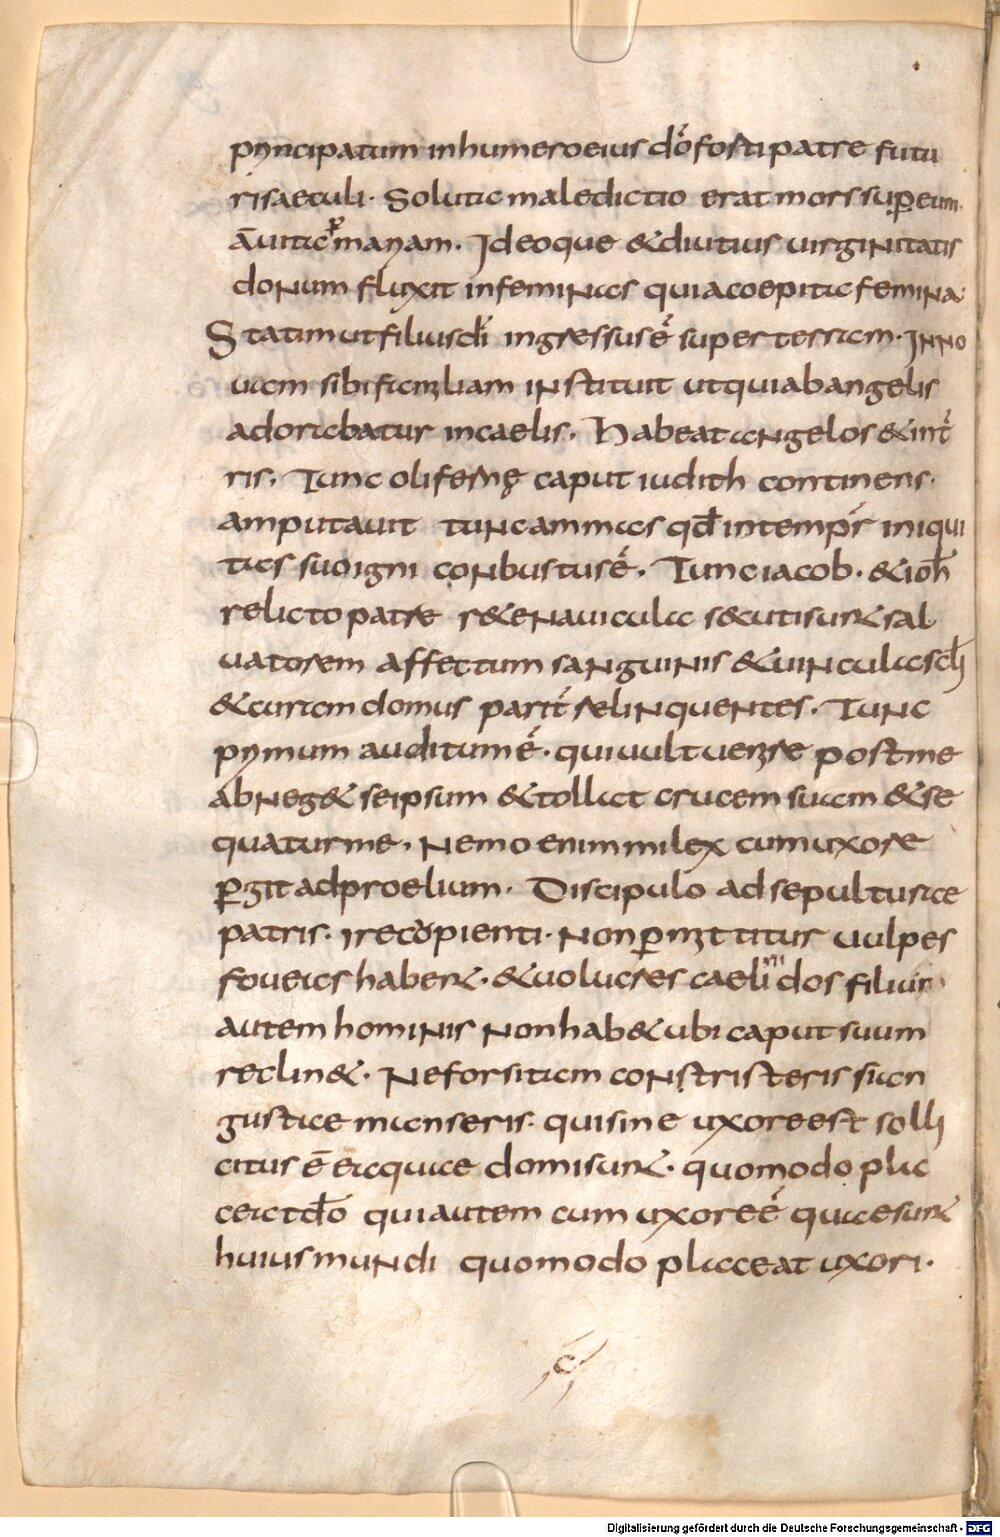 principatum inhumeroeius dōfortipatre futu
risaeculi. Soluta maledictio erat mors sup̄ euam.
āuitap̄mariam. Ideoque &diuitius uirginitatis
donum fluxit infeminas quiacoepita femina.
Statimutfiliusdī ingressusē super terram. Inno
uam sibifamiliam instituit utquiabangelis
adorabatur incaelis. habeat angelos &int̄
ris. Tunc oliferne caput iudith continens.
amputauit tuncammas qd̄ intemp̄r iniqui
tas suoigni conbustusē. Tunc iacob. &ioh̄
relicto patre r&enauicula s&utisunt sal
uatorem affectum sanguinis &uinculascl̄i
&curam domus parit̄ relinquentes. Tunc
primum auditumē. quiuultuenire postme
abneg& seipsum &tollat crucem suam &se
quaturme. Nemo enimmilex cumuxore
p̄git adproelium. Discipulo adsepulturae
patris. irecupienti. Nonp̄mittitur uulpes
foueas habent. &uolucres caeli ni dos filius
autem hominis nonhab& ubi caput suum
reclin&. Neforsitam constristeris sian
gustae manseris. quisine uxoreest solli
citus ē eaquae domisunt. quomodo pla
ceatdō quiautem cum uxoreē quaesunt
huiusmundi quomodo placeat uxori.
c
Digitalisierung gefördert durch die Deutsche Forschungsgemeinschaft - DFG